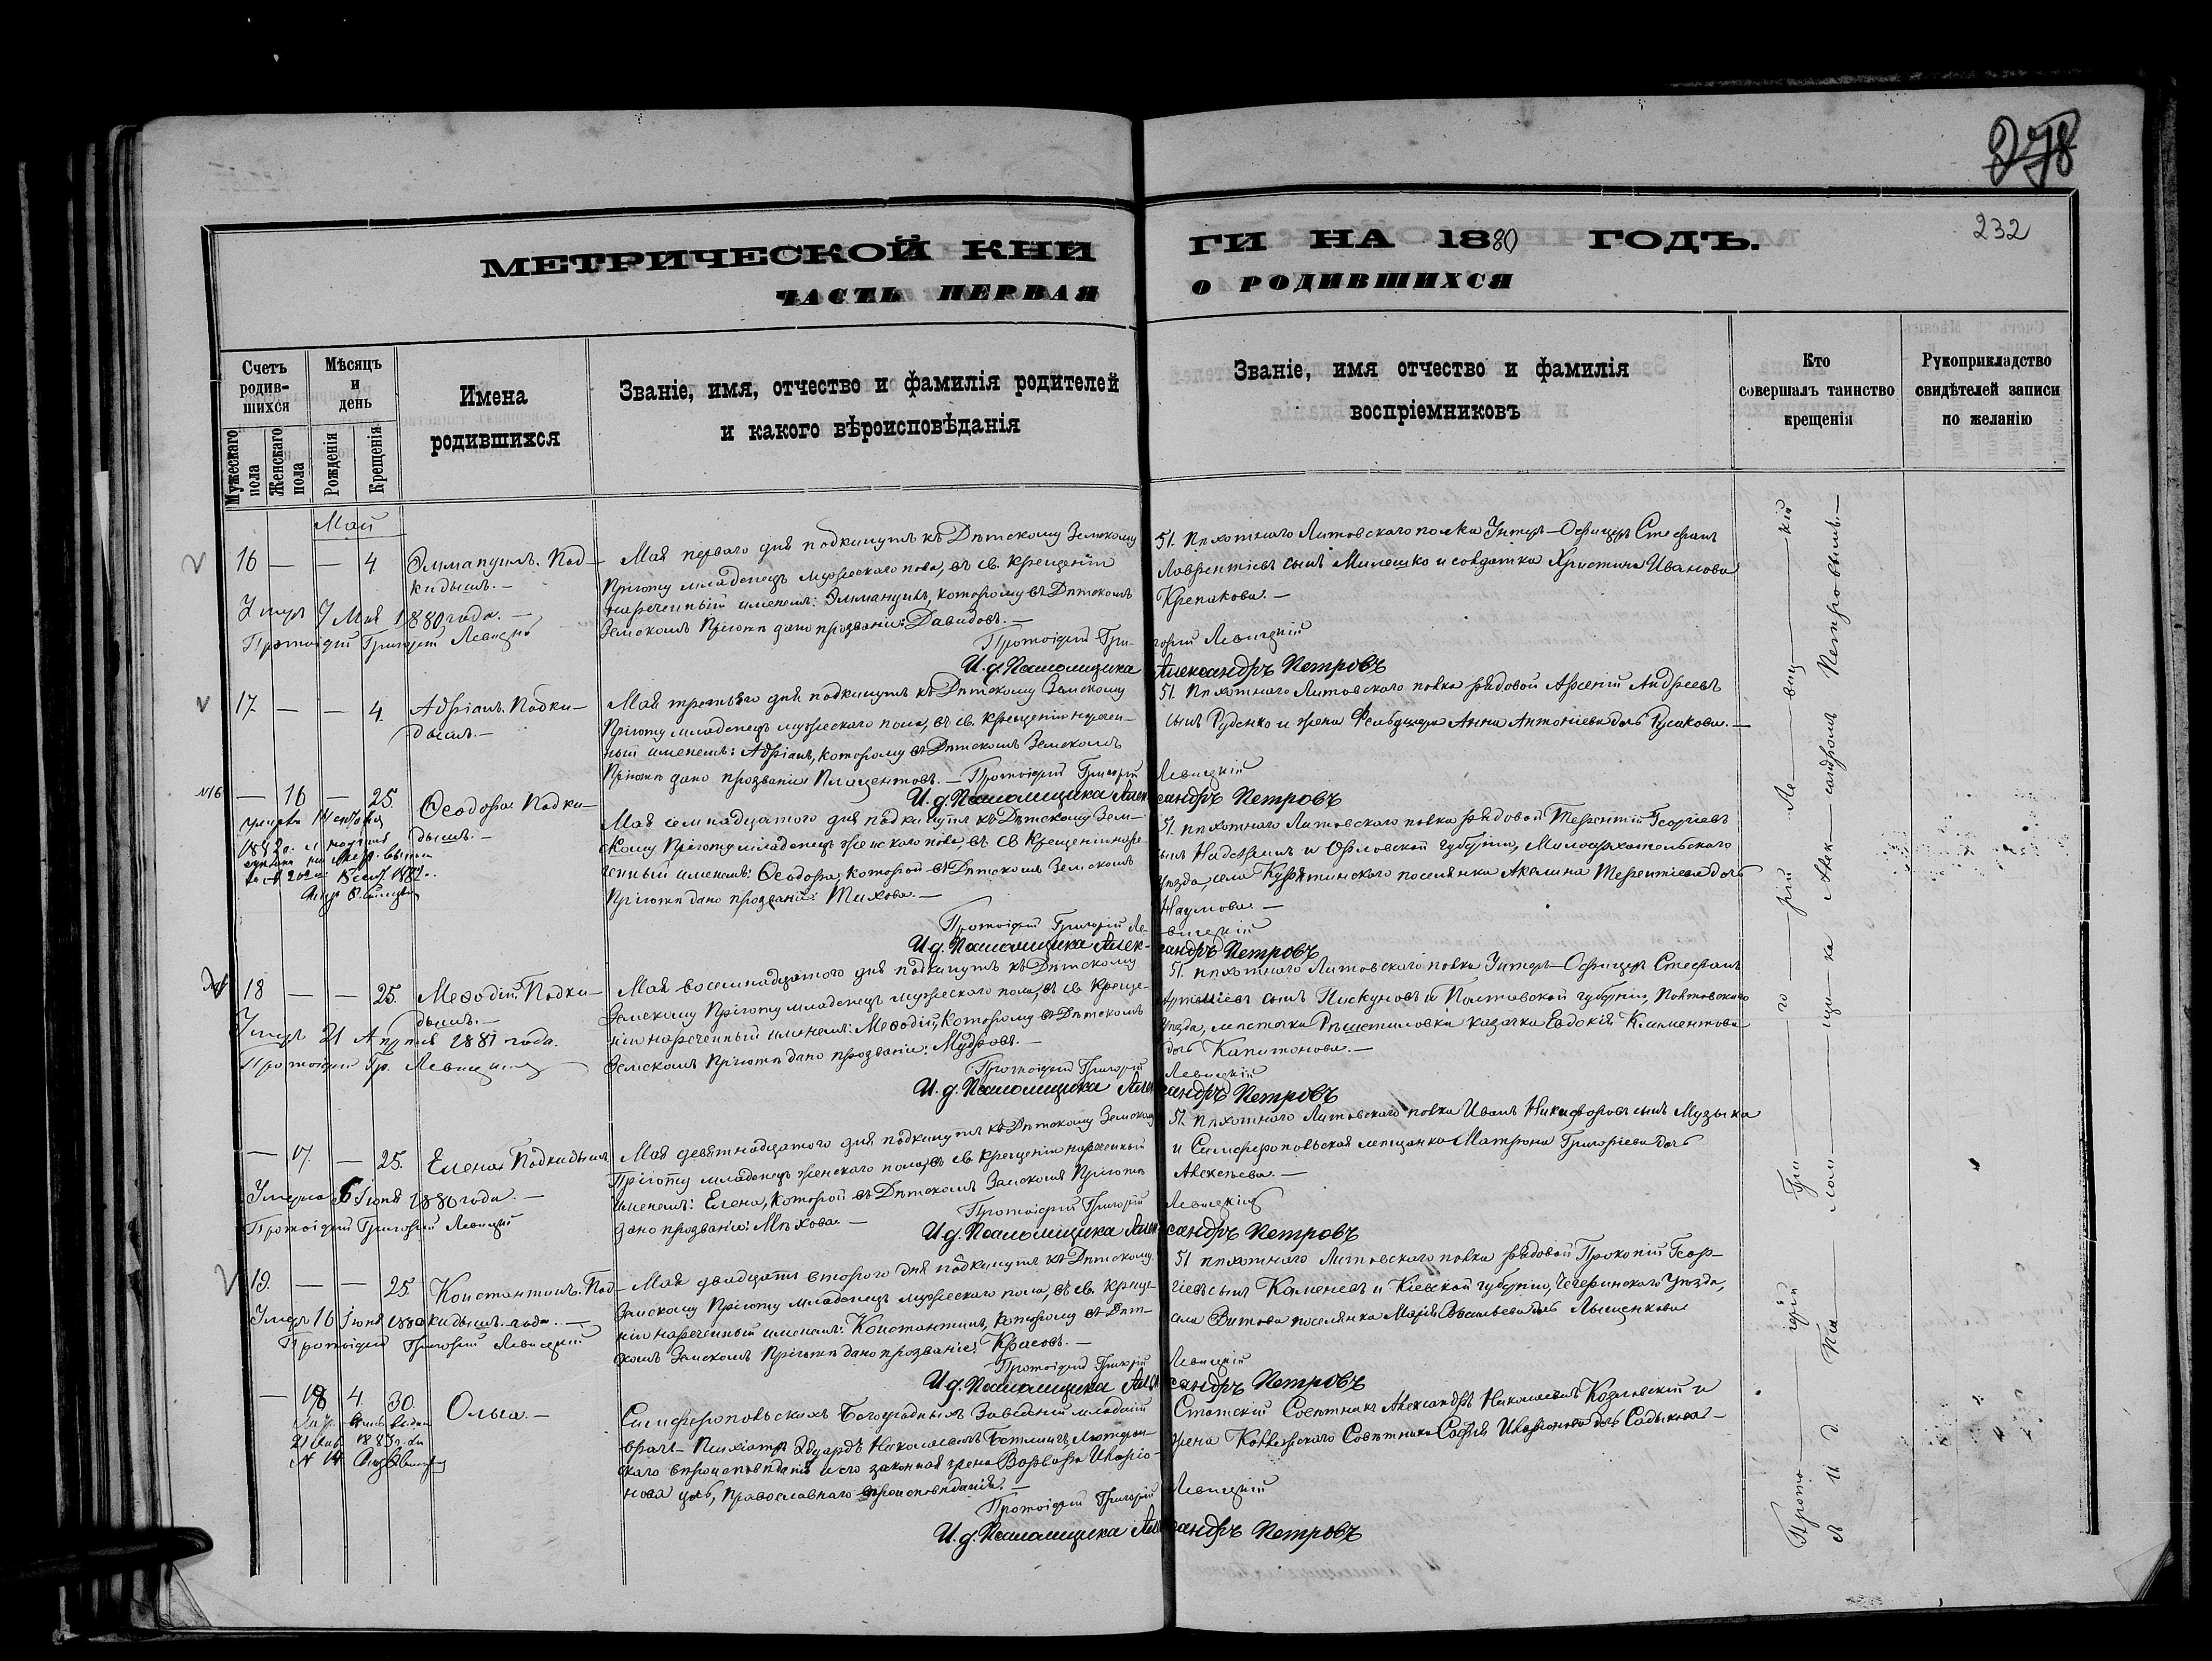 278
232
МЕТРИЧЕСКОЙ КНИ
ГИ НА 1880 ГОДЪ.
ЧАСТЬ ПЕРВАЯ
О РОДИВШИХСЯ
Счетъ родив-
шихся
Мужескаго пола
Женскаго пола
Мѣсяцъ
и
день
Рожденія
Крещенія
Имена
родившихся
Званіе, имя, отчество и фамилія родителей
и какого вѣроисповѣданія
Званіе, имя отчество и фамилія
воспріемниковъ
Кто
совершалъ таинство
крещенія
Рукоприкладство
свидѣтелей записи
по желанію
Май
16 — — 4
Эммануилъ. Под-
кидышъ. —
Умеръ 7 Мая 1880 года. —
Протоіерей Григорій Левицкій
Мая перваго дня подкинутъ къ Дѣтскому Земскому
Пріюту младенецъ мужескаго пола, въ св. крещеніи
нареченный именемъ: Эммануилъ, которому въ Дѣтскомъ
Земскомъ Пріютѣ дано прозваніе: Давидовъ. —
51. Пѣхотнаго Литовскаго полка Унтеръ-Офицеръ Стефанъ
Лаврентіевъ сынъ Милешко и солдатка Христина Иванова
Крепакова. —
Протоіерей Григорій Левицкій
И. д. Псаломщика Александръ Петровъ
17 — — 4.
Адріанъ. Подки-
дышъ. —
Мая третьяго дня подкинутъ къ Дѣтскому Земскому
Пріюту младенецъ мужескаго пола, въ св. крещеніи наречен-
ный именемъ: Адріанъ, которому въ Дѣтскомъ Земскомъ
Пріютѣ дано прозваніе Плацентовъ. — Протоіерей Григорій Левицкій
51. Пѣхотнаго Литовскаго полка рядовой Арсеній Андреевъ
сынъ Руденко и жена Фельдшера Анна Антоніева дочь Русакова. —
И. д. Псаломщика Александръ Петровъ
№16
— 16 — 25.
Ѳеодора. Подки-
дышъ. —
Мая семнадцатого дня подкинутъ къ Дѣтскому Зем-
скому Пріюту младенецъ женскаго пола, въ св крещеніи наре-
ченный именемъ: Ѳеодора, которой въ Дѣтскомъ Земскомъ
Пріютѣ дано прозваніе: Тихова. —
51. пѣхотнаго Литовскаго полка рядовой Терентій Георгіевъ
сынъ и Орловской губерніи, Малоархангельского
уѣзда, села поселянка Акелина Терентіева дочь
Наумова. —
Протоіерей Григорій Левицкій
И. д. Псаломщика Александръ Петровъ
18 — — 25.
Меѳодій. Подки-
дышъ. —
Умеръ 21 Апрѣля 1881 года.
Протоіерей Гр. Левицкій
Мая восемнадцатого дня подкинутъ къ Дѣтскому
Земскому Пріюту младенецъ мужескаго пола, въ св. креще-
ніи нареченный именемъ: Меѳодій, которому въ Дѣтскомъ
Земскомъ Пріютѣ дано прозваніе: Мудровъ. —
51. пѣхотнаго Литовскаго полка Унтеръ-Офицеръ Стефанъ
сынъ Пискуновъ и Полтавской губерніи, Полтавского
уѣзда, мѣстечка Рѣшетиловки казачка Евдокія Климентова
дочь Капитонова. —
Протоіерей Григорій Левицкій
И. д. Псаломщика Александръ Петровъ
— 17. — 25.
Елена. Подкидышъ
Умерла 6 Іюня 1880 года. —
Протоіерей Григорій Левицкій
Мая девятнадцатого дня подкинутъ къ Дѣтскому Земскому
Пріюту младенецъ женскаго пола, въ св. крещеніи нареченный
именемъ: Елена, которой въ Дѣтскомъ Земскомъ Пріютѣ
дано прозваніе: Мѣхова. —
51. пѣхотнаго Литовскаго полка Иванъ Никифоровъ сынъ Музыка
и Симферопольская мещанка Матрона Григоріева дочь
Алексѣева. —
Протоіерей Григорій Левицкій
И. д. Псаломщика Александръ Петровъ
19. — — 25.
Константинъ. Под-
кидышъ. —
Умеръ 16 Іюня 1880 года. —
Протоіерей Григорій Левицкій
Мая двадцать второго дня подкинутъ къ Дѣтскому
Земскому Пріюту младенецъ мужескаго пола, въ св. креще-
ніи нареченный именемъ: Константинъ, которому въ Дѣт-
скомъ Земскомъ Пріютѣ дано прозваніе: Красовъ. —
51 пѣхотнаго Литовскаго полка рядовой Прокопій Геор-
гіевъ сынъ Каменевъ и Кіевской губерніи, Чегеринского Уѣзда,
села Витова поселянка Марія Васильева дочь Лященкова
Протоіерей Григорій Левицкій
И. д. Псаломщика Александръ Петровъ
— 18 4. 30.
Ольга. —
Симферопольскихъ Богоугодныхъ Заведеній младшій
врачъ-Психіатръ Эдуардъ Николаевичъ Бетлингъ, Лютеран-
скаго вѣроисповѣданія и его законная жена Варвара Иларіо-
нова дочь, православнаго вѣроисповѣданія. —
Статскій Совѣтникъ Александръ Николаевичъ Козловскій и
жена Коллежскаго Совѣтника Софія Иларіонова дочь Садыкова —
Протоіерей Григорій Левицкій
И. д. Псаломщика Александръ Петровъ
Прото — іерей Гри — го — рій Ле — виц — кій
и д Пса — лом — щи — ка Алек — сандромъ Петровымъ. —